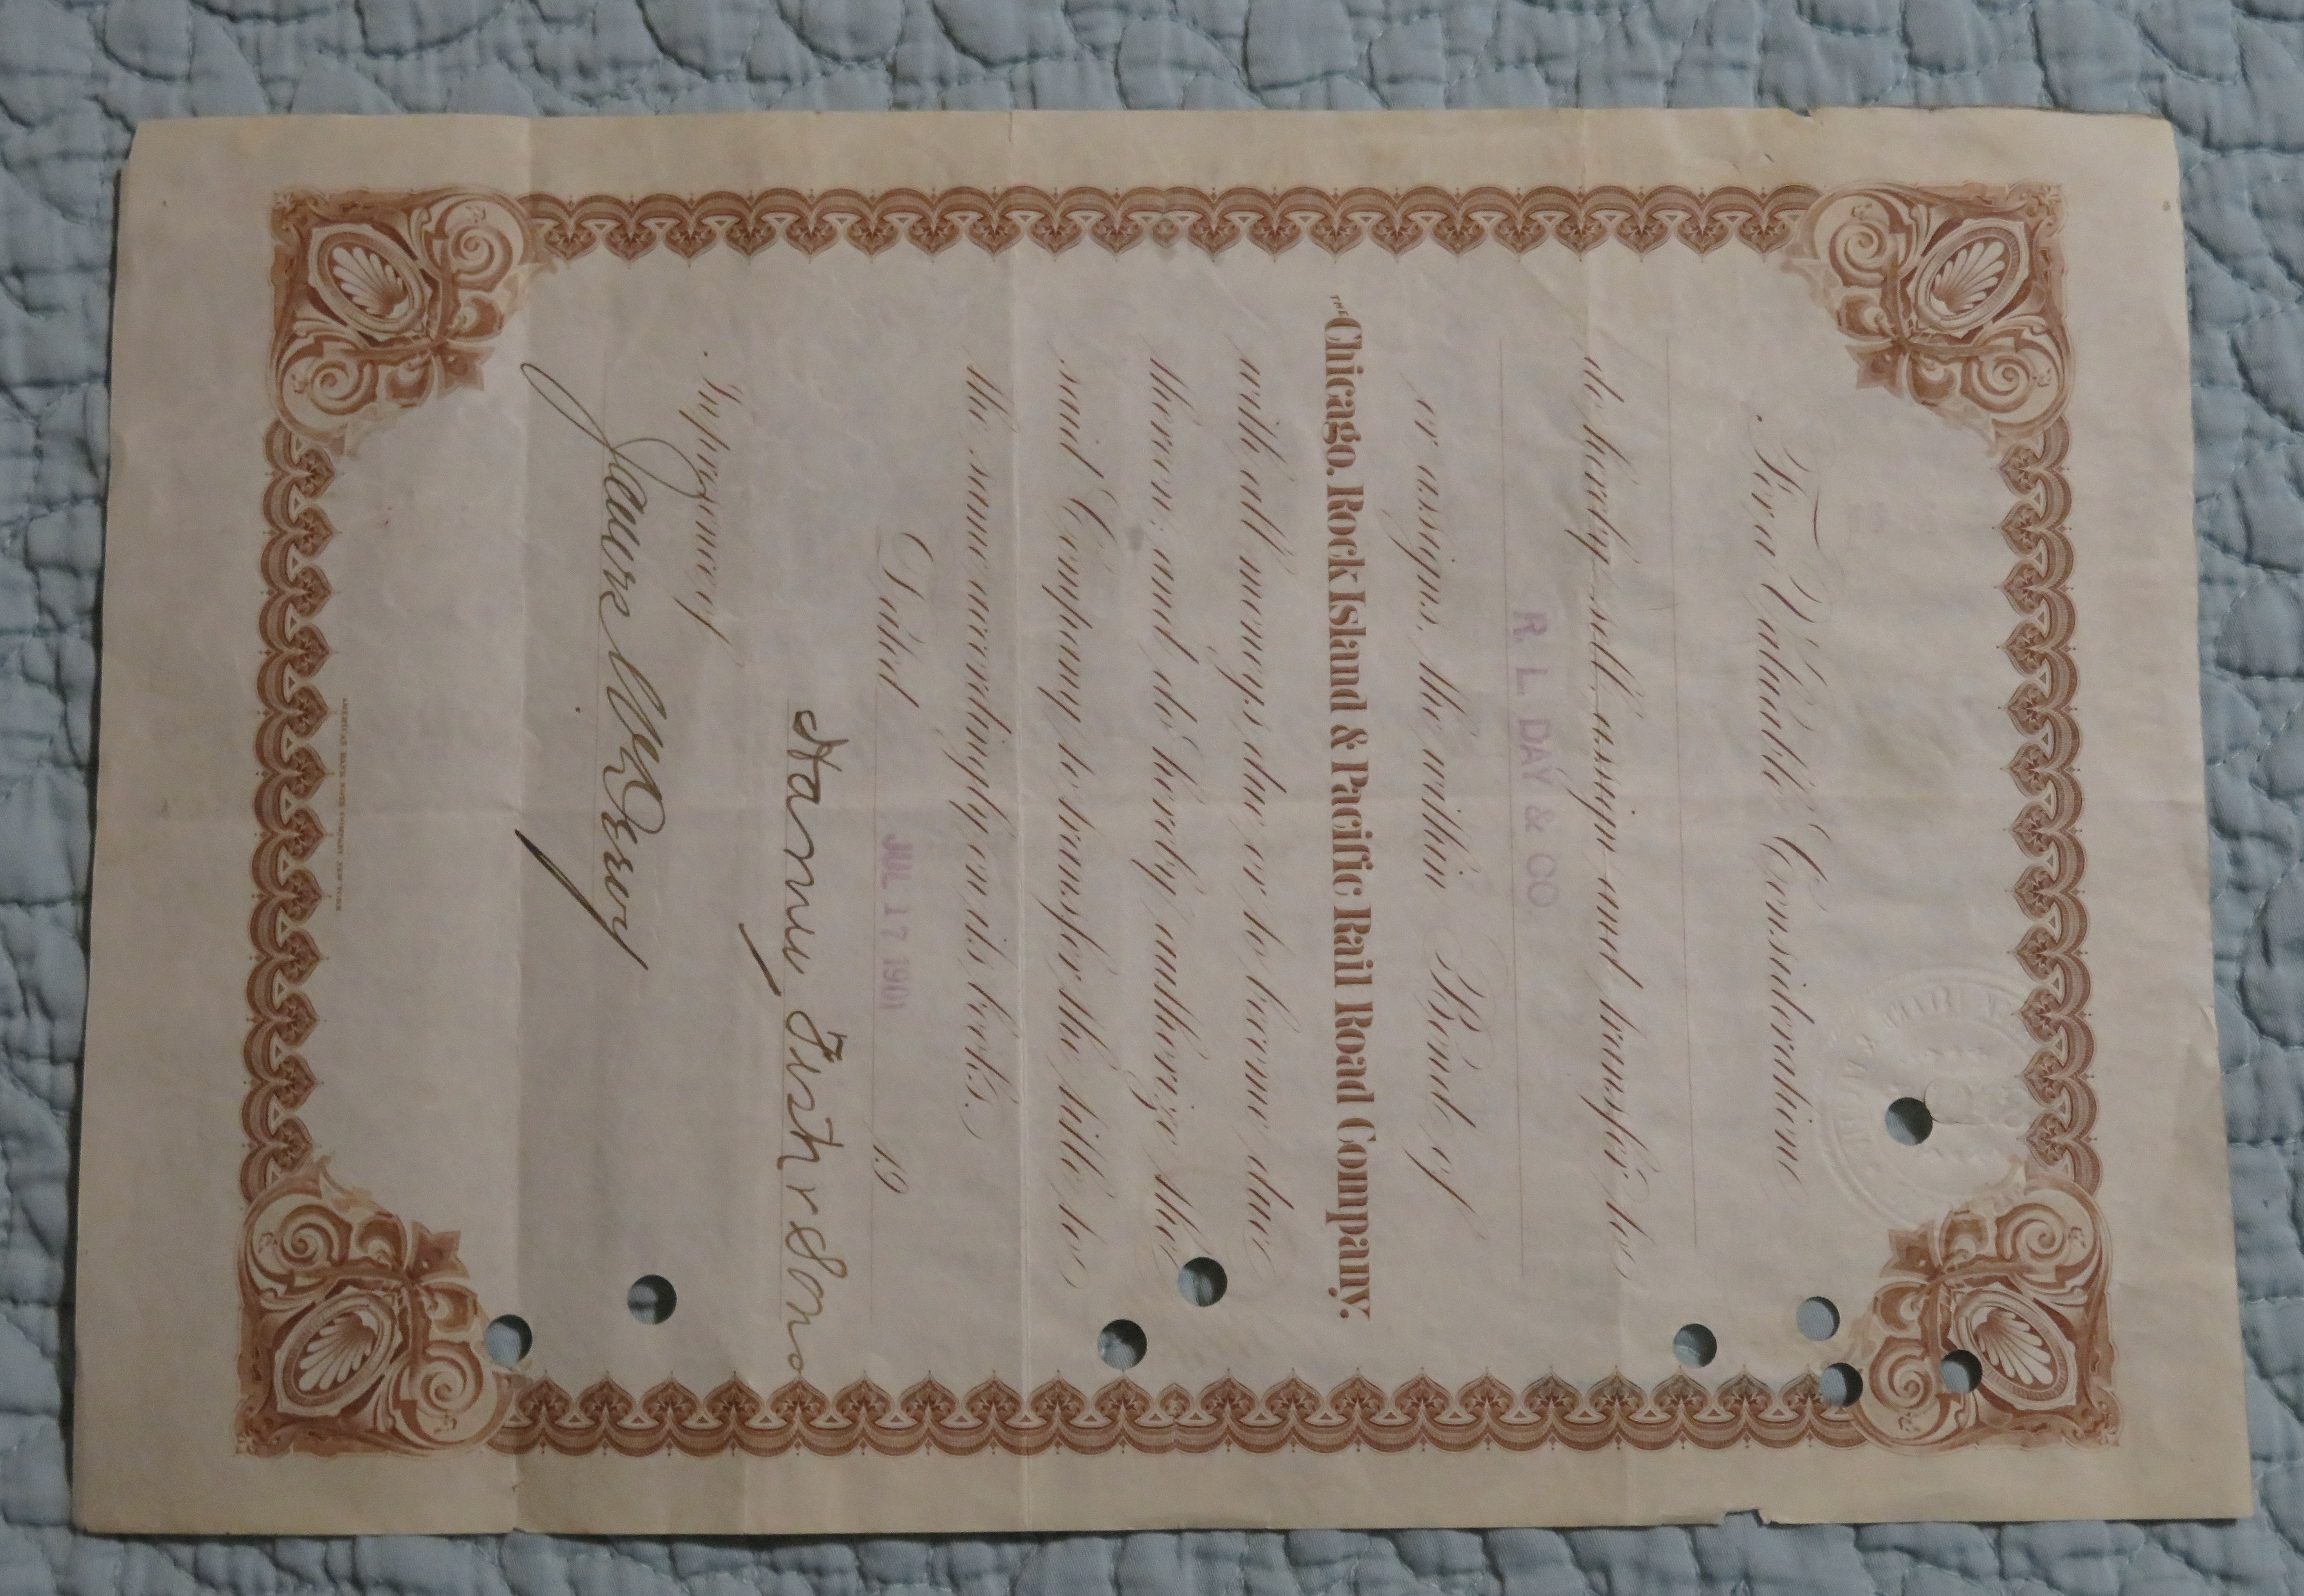 For a Valuable Consideration
do hereby sell, assign and transfer to
R. L. DAY & CO.
or assigns, the within Bond of
THE Chicago, Rock Island & Pacific Rail Road Company,
with all moneys due or to become due
thereon; and do hereby authorize the
said Company to transfer the title to
the same accordingly on its books.
Dated JUL 17 1901 19
Harvey Fisk & Sons
In presence of
AMERICAN BANK NOTE COMPANY, NEW YORK